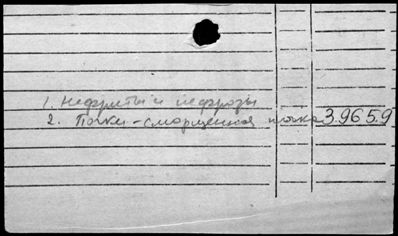 1. Нефриты и нефрозы
2. Почки - сморщенная почка 3.965.9